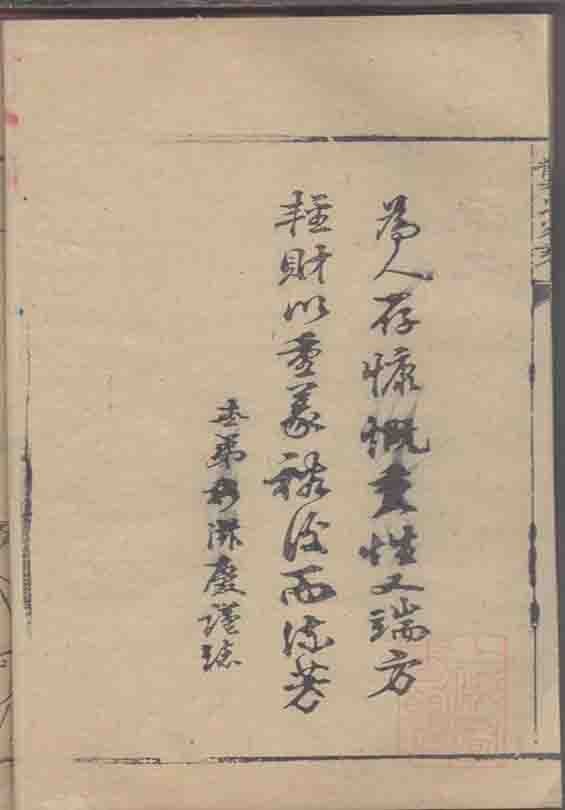 為人存慷慨秉性又端方
輕財以重義裕後而流芳
弟 慶謹誌